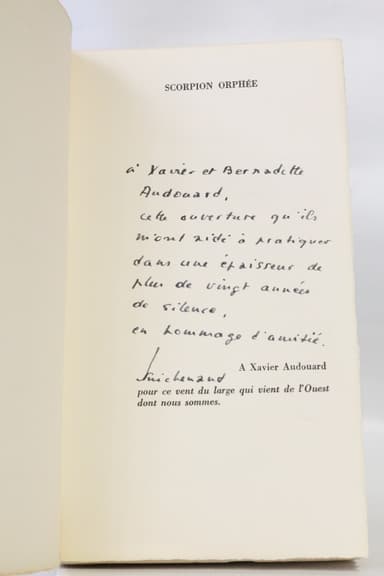 SCORPION ORPHÉE
à Xavier et Bernadette
Audouard,
cette ouverture qu'ils
m'ont aidé à pratiquer
dans une épaisseur de
plus de vingt années
de silence,
en hommage d'amitié.
A Xavier Audouard
Guichenand
pour ce vent du large qui vient de l'Ouest
dont nous sommes.